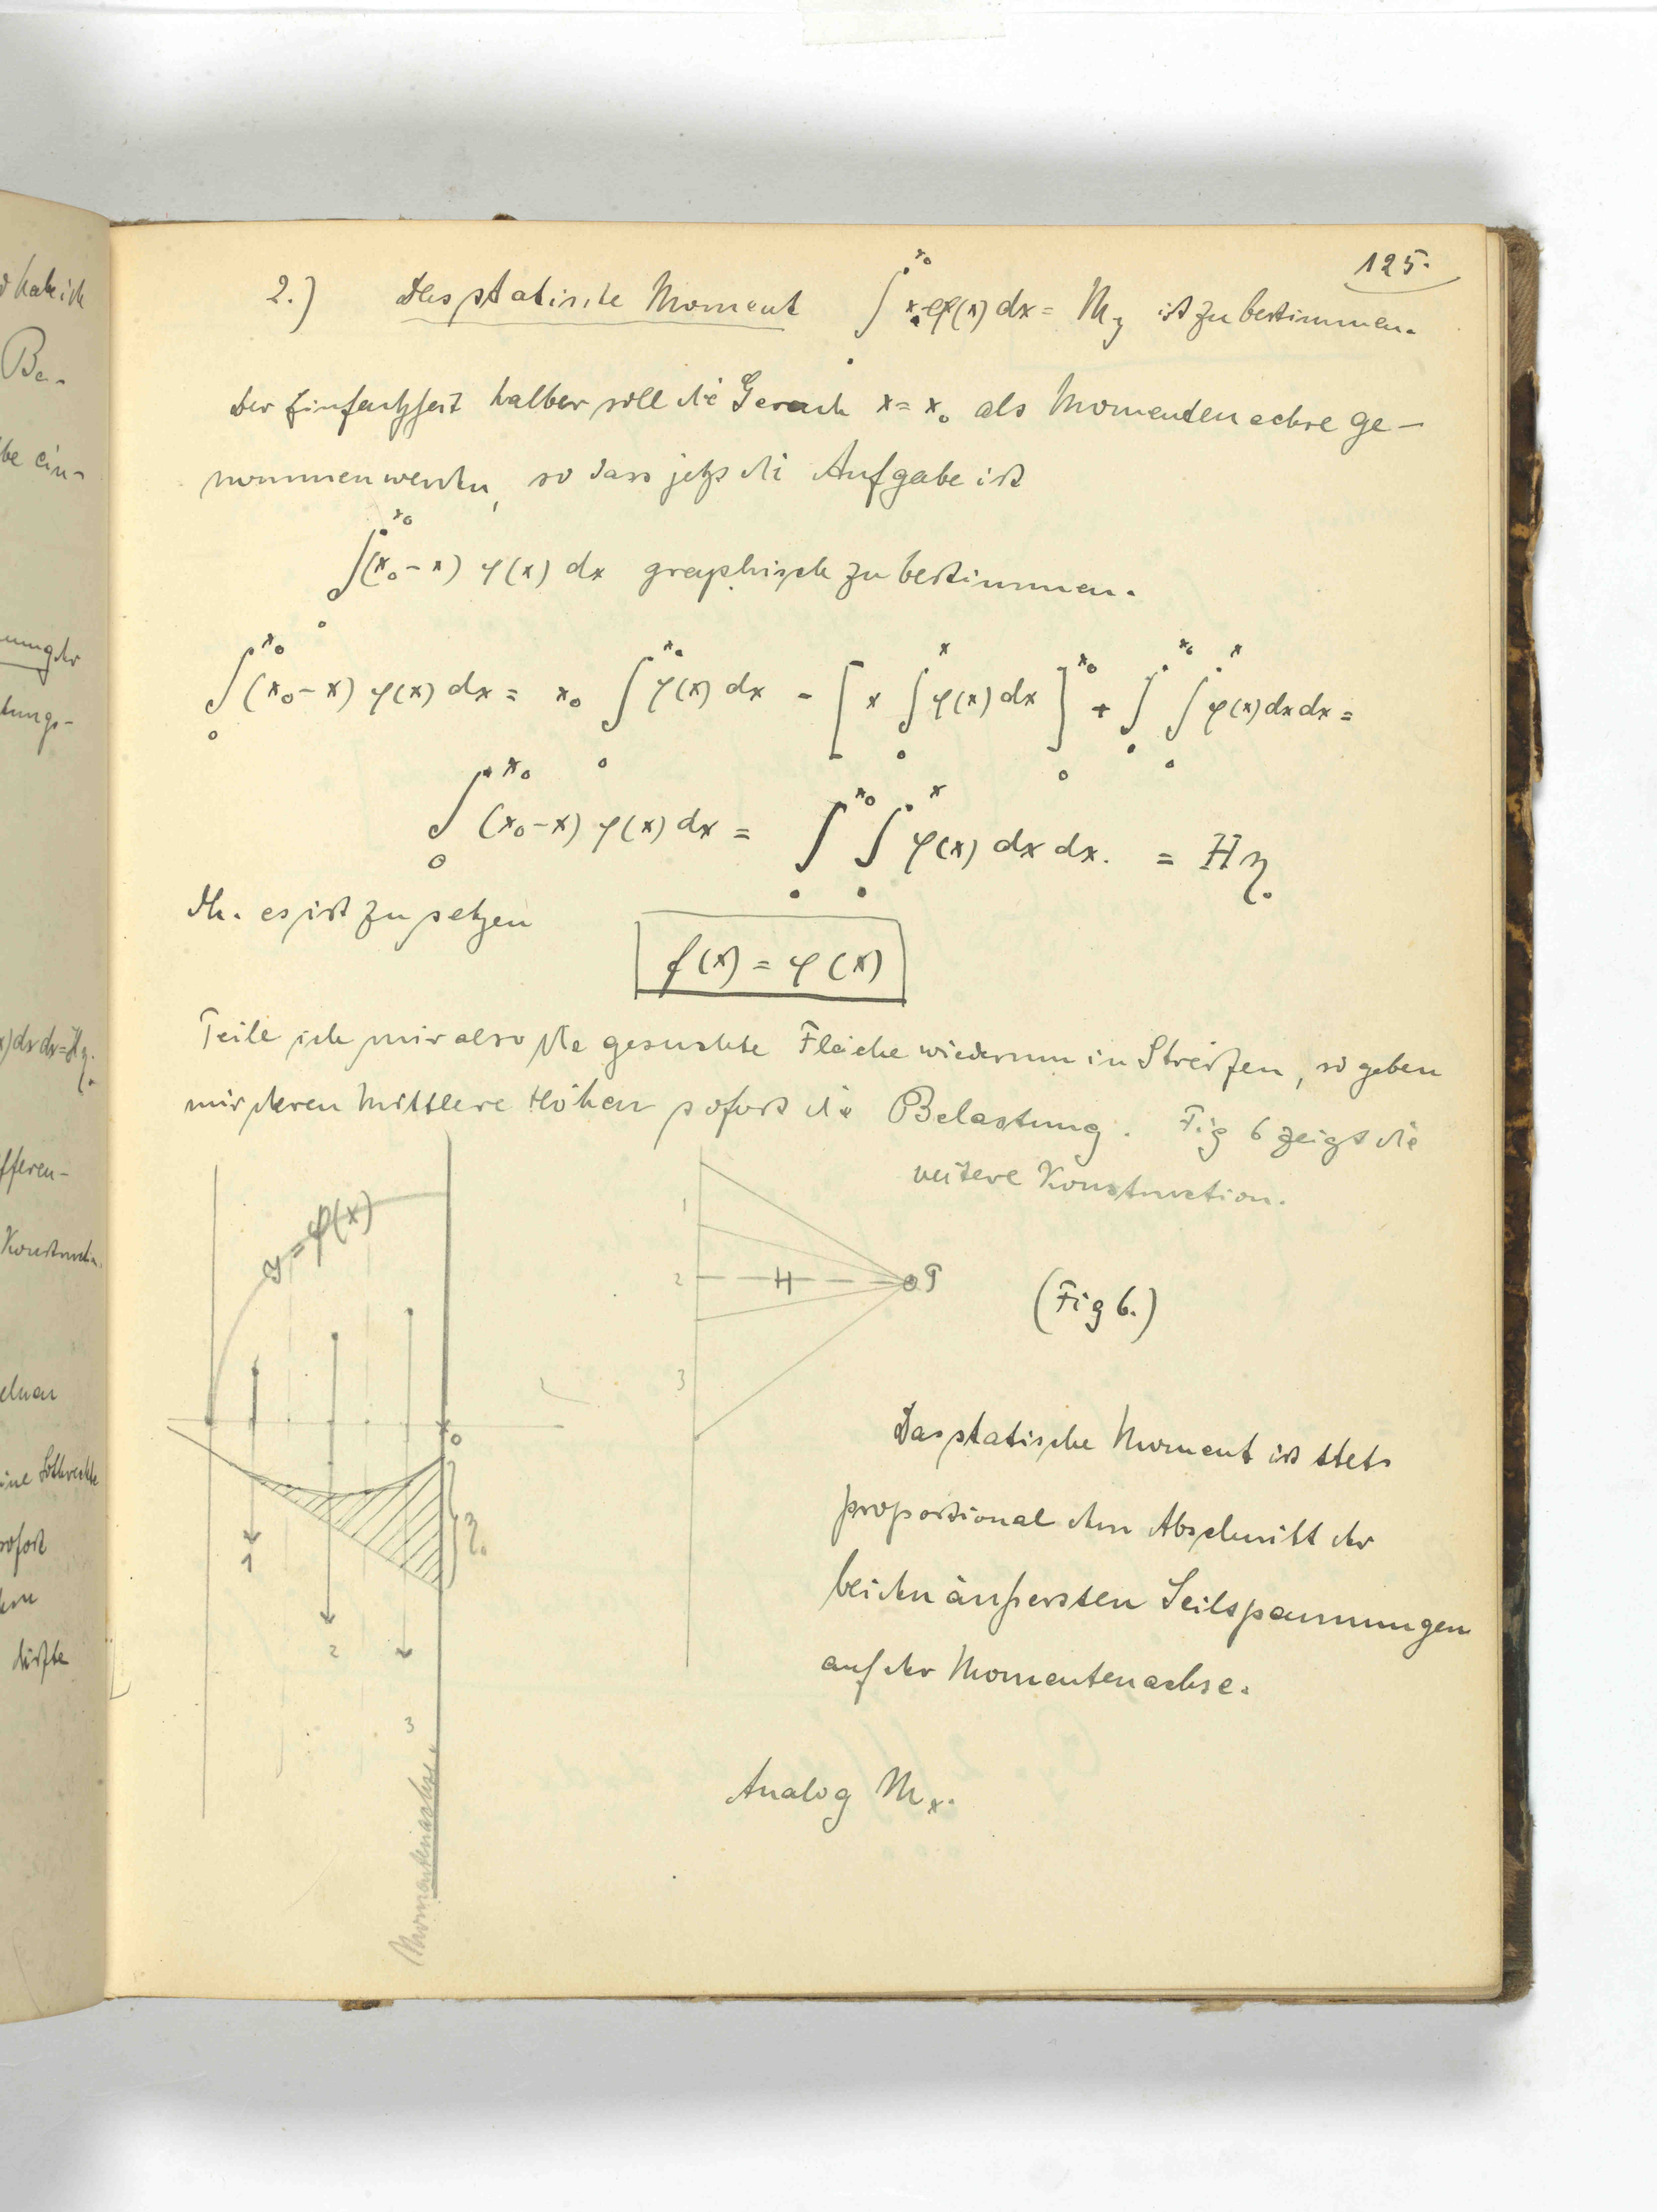 125.
2.) Das statische Moment ∫₀^{x₀} x·φ(x) dx = M_y ist zu bestimmen.
Der Einfachheit halber soll die Gerade x = x₀ als Momentenachse ge-
nommen werden, so dass jetzt die Aufgabe ist
∫₀^{x₀} (x₀-x) φ(x) dx graphisch zu bestimmen.
∫₀^{x₀} (x₀-x) φ(x) dx = x₀ ∫₀^{x₀} φ(x) dx - [x ∫₀^{x} φ(x) dx]₀^{x₀} + ∫₀^{x₀} ∫₀^{x} φ(x) dx dx =
∫₀^{x₀} (x₀-x) φ(x) dx = ∫₀^{x₀} ∫₀^{x} φ(x) dx dx. = Hη.
dh. es ist zu setzen
f(x) = φ(x)
Teile ich mir also die gesuchte Fläche wiederum in Streifen, so geben
mir deren mittlere Höhen sofort die Belastung. Fig 6 zeigt die
weitere Konstruction.
y = φ(x)
x₀
η₀
1
2
3
Momentenachse.
1
2
3
H
P
(Fig 6.)
Das statische Moment ist stets
proportional dem Abschnitt der
beiden äußersten Seilspannungen
auf der Momentenachse.
Analog M_x.
habe ich
Be-
be ein-
tungs-
) dx dx = Hη.
fferen-
Konstruction.
ine Lothrechte
sofort
dürfte